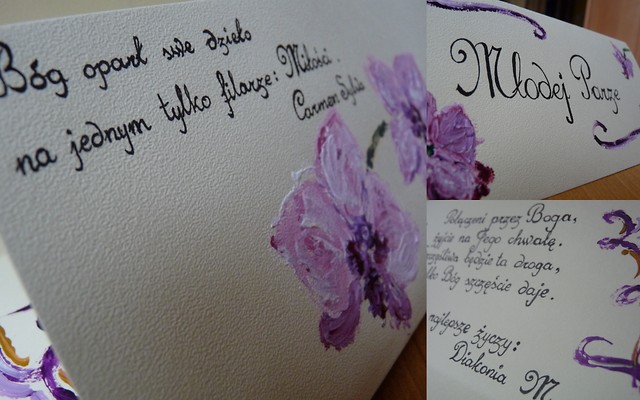 Bóg oparł swe dzieło
na jednym tylko filarze: Miłości.
Carmen Sylva
Młodej Parze
Połączeni przez Boga,
żyjcie na Jego chwałę.
będzie ta droga,
Bóg szczęście daje.
najlepsze życzy:
Diakonia M